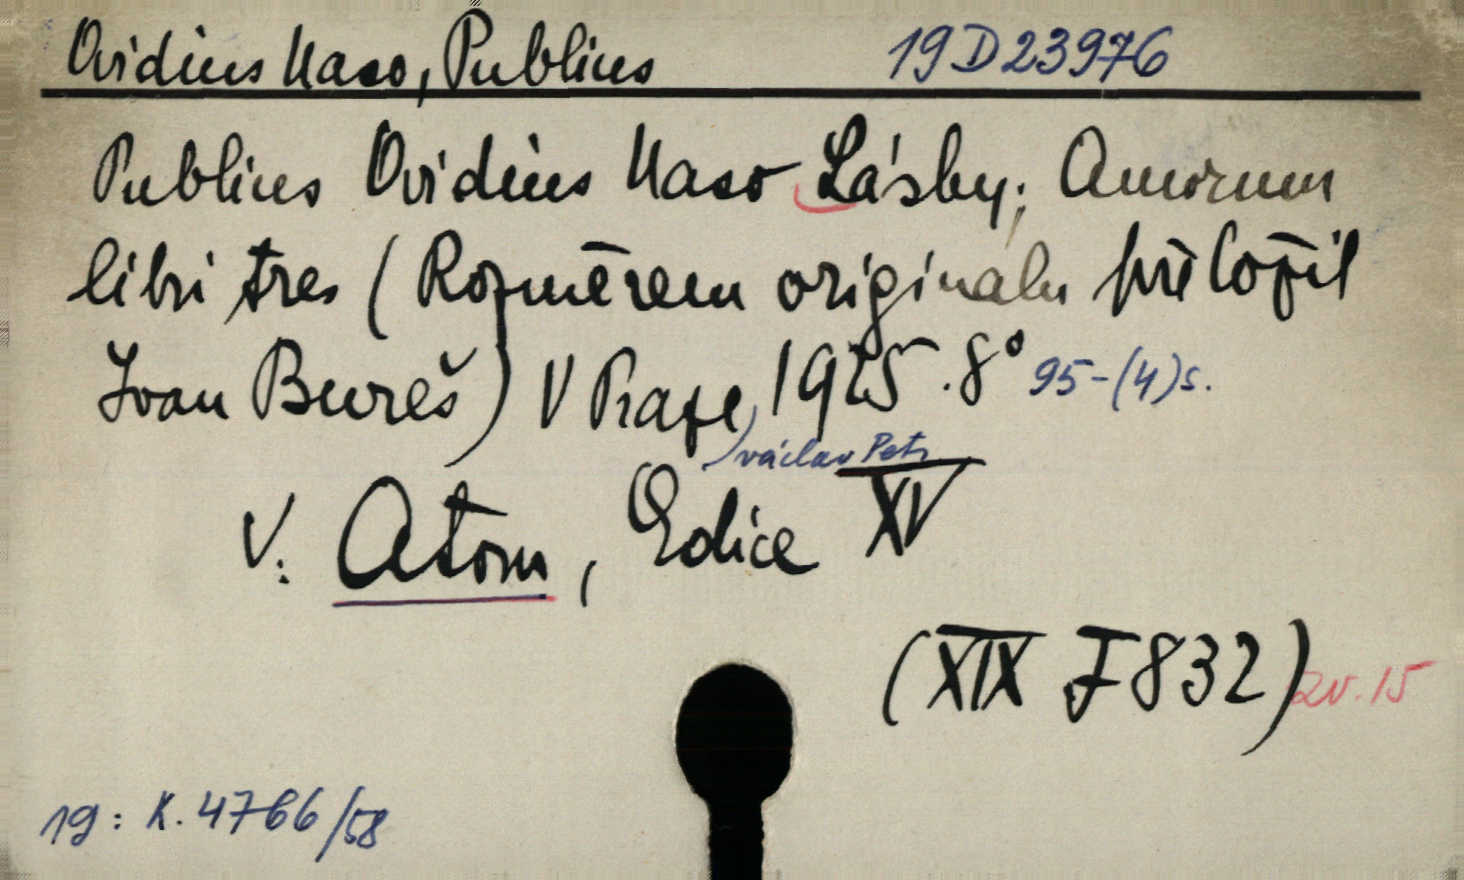 Ovidius Naso, Publius 19 D 23976
Publius Ovidius Naso Lásky; Amorum
libri tres (Rozměrem originálu přeložil
Ivan Bureš) V Praze, 1925. 8° 95-(4)s.
Václav Petr
V: Atom, Edice XV
(XIX F 832) zv. 15
19: K. 4766/58